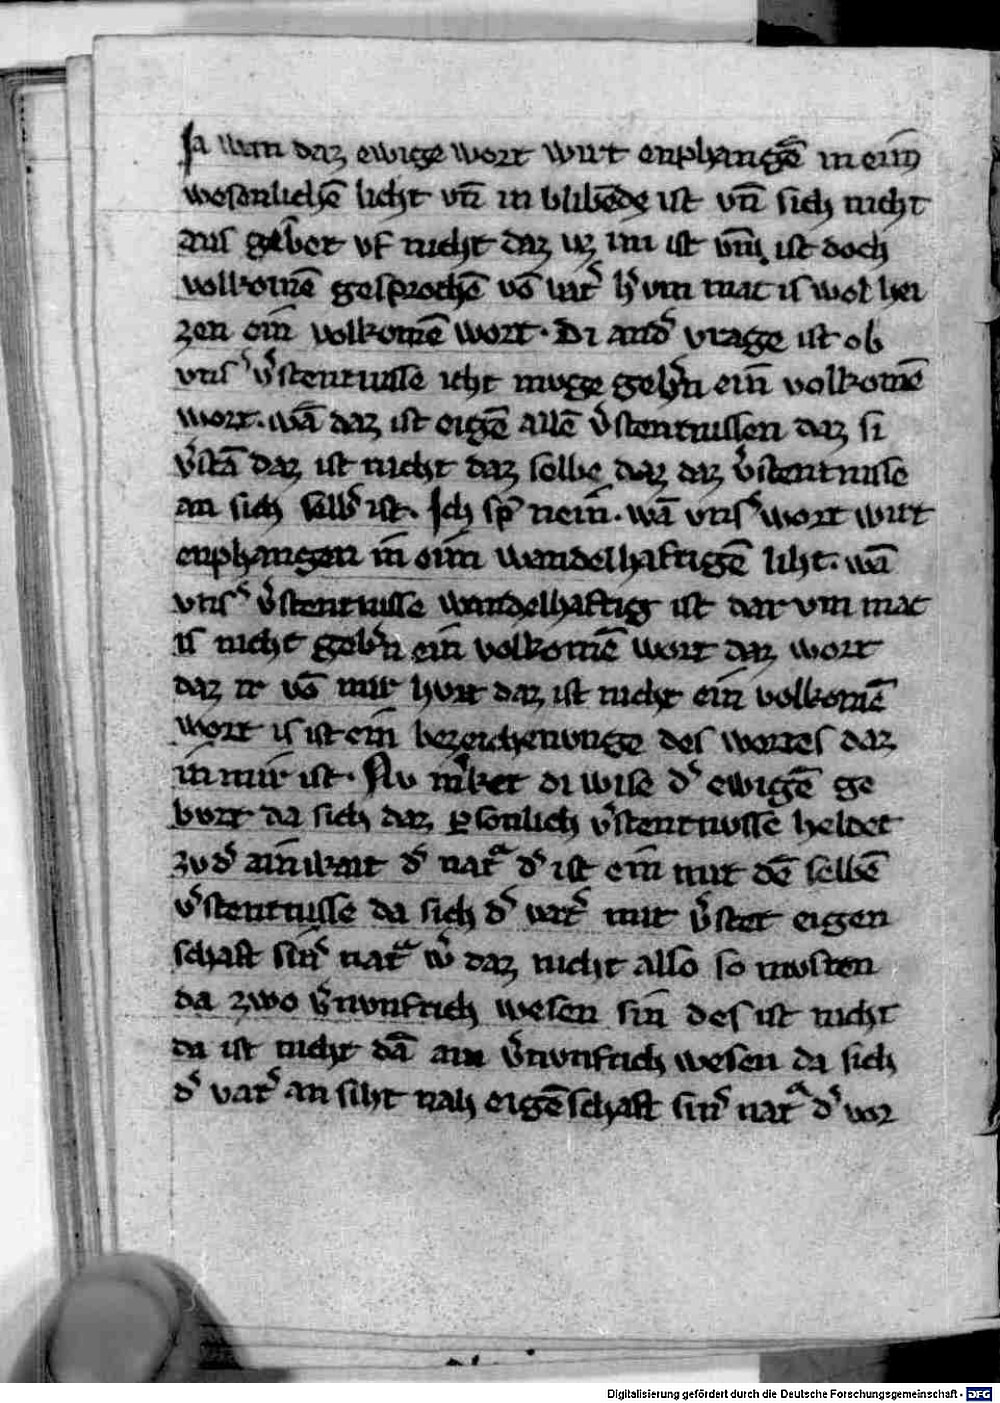 Ja wan daz ewige wort wirt enphangē in eim
wesenlichē licht vn̄ in blibēde ist vn̄ sich nicht
aus gebˀet vf nicht daz uz im ist vm̄ ist doch
volkomē gesprochē vō vatˀ hˀ vm mac is wol hei
zen ein volkomē wort · Di andˀ vrage ist ob
vnsˀ vˀstentnisse icht muge gebˀn ein volkomē
wort · wā daz ist eigē allē vˀstentnissen daz si
vˀstā daz ist nicht daz selbe daz daz vˀstentnisse
an sich selbˀ ist · Ich spˀ nein · wā vnsˀ wort wirt
enphangen in eim wandelhaftigē liht · wā
vnsˀ vˀstentnisse wandelhaftig ist dar vm mac
is nicht gebˀn ein volkomē wort daz wort
daz ir vō mir hort daz ist nicht ein volkomē
wort is ist ein bezeichenunge des wortes daz
in mir ist · Nu mˀket di wise dˀ ewigē ge
burt da sich daz ꝑsonlich vˀstentnosse heldet
zu dˀ dˀ natˀ dˀ ist ein mit dē selbē
vˀstentnisse da sich dˀ vatˀ mit vˀstet eigen
schaft sinˀ natˀ wˀ daz nicht also so musten
da zwo vˀnunftich wesen sin des ist nicht
da ist nicht dā ain vˀnunftich wesen da sich
dˀ vatˀ an siht nah eigēschaft sinˀ natˀ dˀ vor